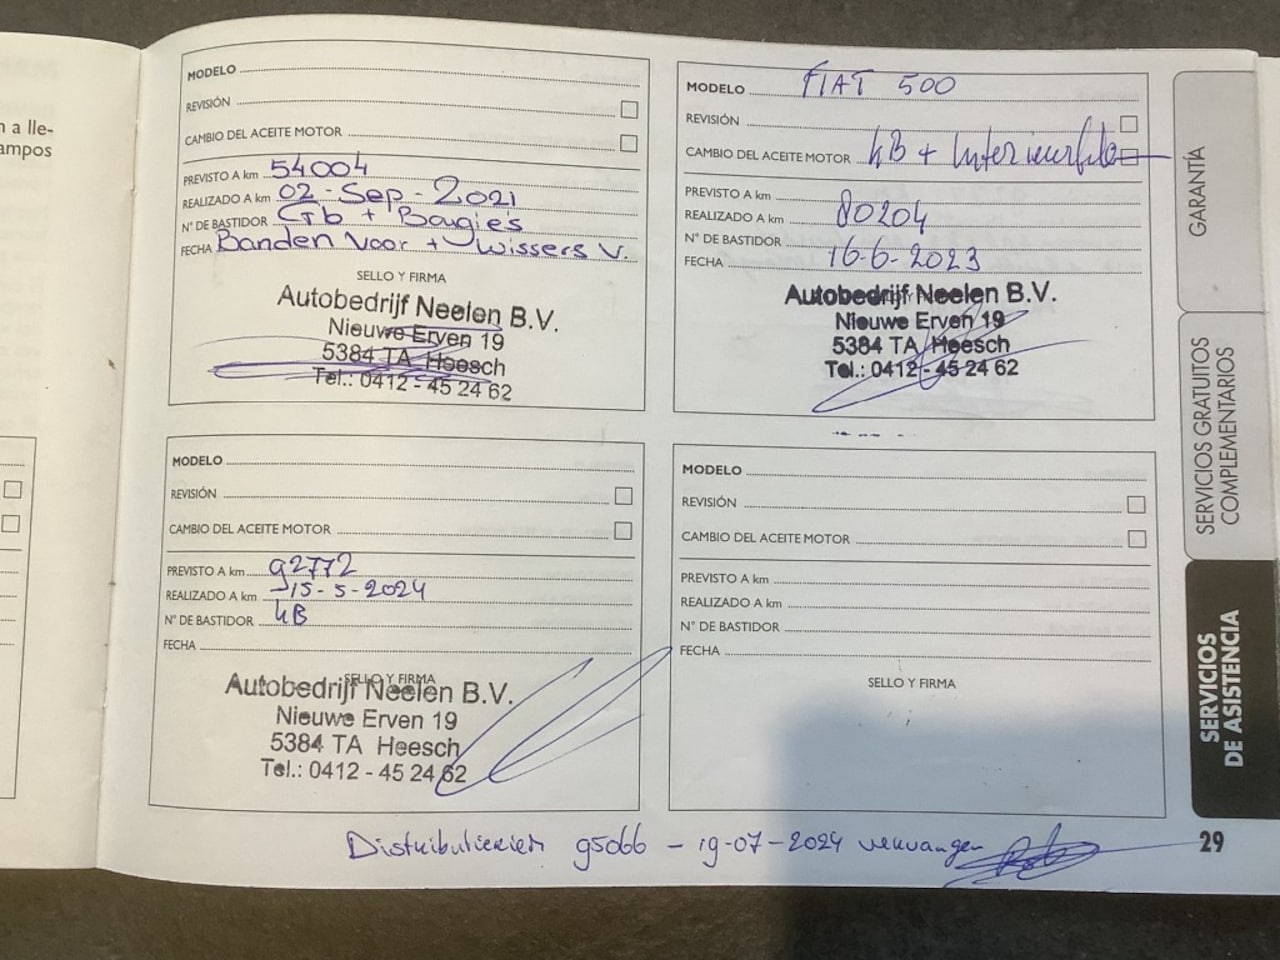 n a lle-
ampos
MODELO
REVISIÓN
CAMBIO DEL ACEITE MOTOR
PREVISTO A km 54004
REALIZADO A km 02-Sep-2021
N° DE BASTIDOR Gb + Bougies
FECHA Banden Voor + wissers V.
SELLO Y FIRMA
Autobedrijf Neelen B.V.
Nieuwe Erven 19
5384 TA Heesch
Tel.: 0412 - 45 24 62
MODELO FIAT 500
REVISIÓN
CAMBIO DEL ACEITE MOTOR
PREVISTO A km
REALIZADO A km 80204
N° DE BASTIDOR
FECHA 16-6-2023
Autobedrijf Neelen B.V.
Nieuwe Erven 19
5384 TA Heesch
Tel.: 0412 - 45 24 62
MODELO
REVISIÓN
CAMBIO DEL ACEITE MOTOR
PREVISTO A km 92772
REALIZADO A km 15-5-2024
N° DE BASTIDOR
FECHA
SELLO Y FIRMA
Autobedrijf Neelen B.V.
Nieuwe Erven 19
5384 TA Heesch
Tel.: 0412 - 45 24 62
MODELO
REVISIÓN
CAMBIO DEL ACEITE MOTOR
PREVISTO A km
REALIZADO A km
N° DE BASTIDOR
FECHA
SELLO Y FIRMA
Distributieriem 95066 - 19-07-2024 vervangen
GARANTÍA
SERVICIOS GRATUITOS
COMPLEMENTARIOS
SERVICIOS
DE ASISTENCIA
29